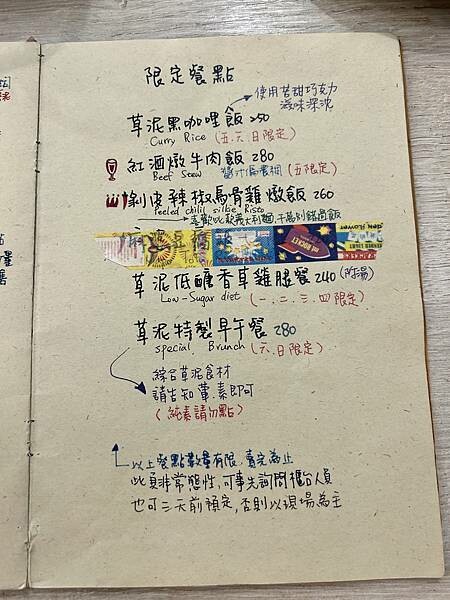 限定餐點
使用苦甜巧克力
滋味深沈
草泥黑咖哩飯 250
Curry Rice (五.六.日限定)
紅酒燉牛肉飯 280
Beef Stew 醬汁偏濃稠 (五限定)
剝皮辣椒烏骨雞燉飯 260
Peeled chili silkie Risto
喜歡此款義大利麵,千萬別錯過飯
草泥低醣香草雞腿餐 240 (除湯)
Low-Sugar diet (一.二.三.四限定)
草泥特製早午餐 280
special Brunch (六.日限定)
綜合草泥食材
請告知葷.素即可
(純素請勿點)
以上餐點數量有限,賣完為止
此頁非常態性,可事先詢問櫃台人員
也可三天前預定,否則以現場為主